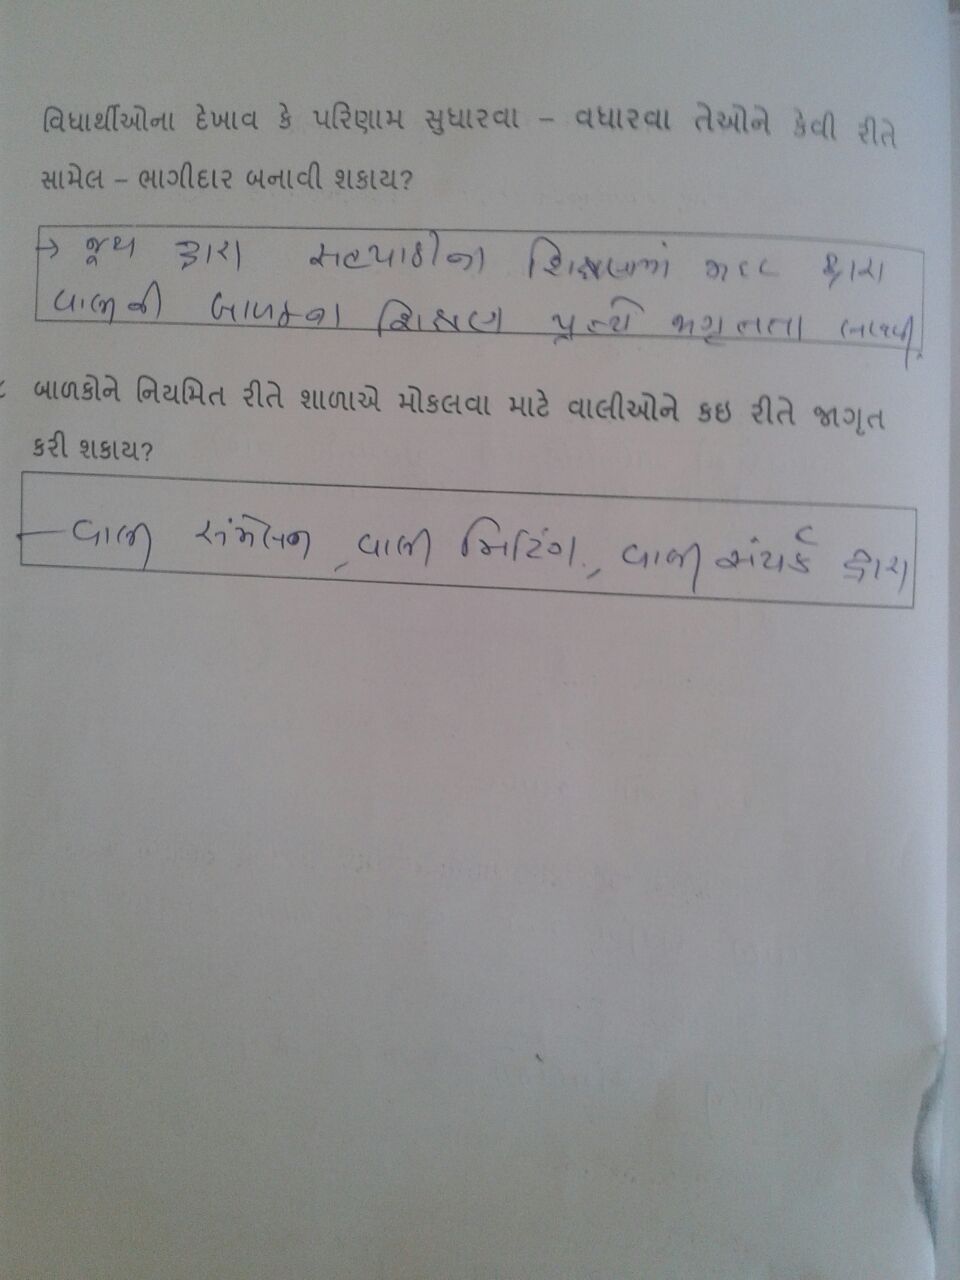 વિધાર્થીઓના દેખાવ કે પરિણામ સુધારવા – વધારવા તેઓને કેવી રીતે
સામેલ – ભાગીદાર બનાવી શકાય?
→ જૂથ દ્વારા સહપાઠીના શિક્ષણમાં મદદ દ્વારા
વાલીની બાળકના શિક્ષણ પ્રત્યે જાગૃતતા લાવવી
૮ બાળકોને નિયમિત રીતે શાળાએ મોકલવા માટે વાલીઓને કઇ રીતે જાગૃત
કરી શકાય?
– વાલી સંમેલન, વાલી મિટિંગ, વાલી સંપર્ક દ્વારા